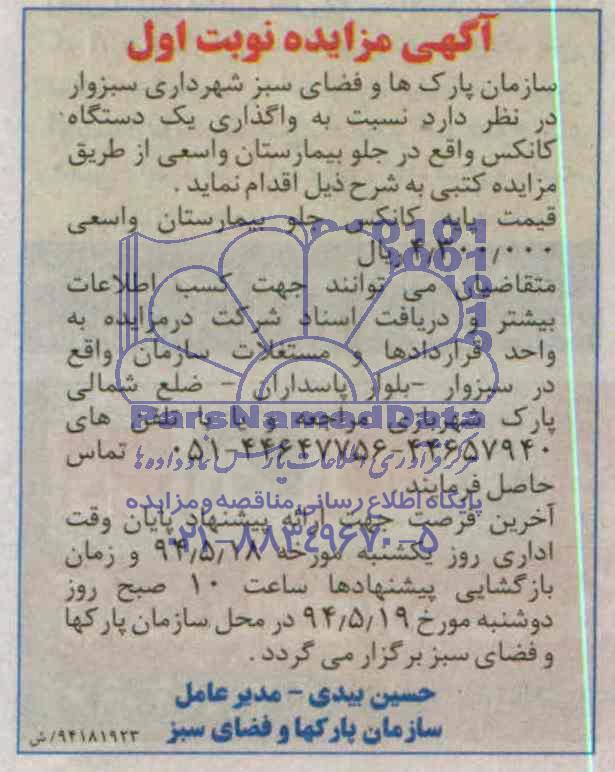 آگهی مزایده نوبت اول
سازمان پارک ها و فضای سبز شهرداری سبزوار
در نظر دارد نسبت به واگذاری یک دستگاه
کانکس واقع در جلو بیمارستان واسعی از طریق
مزایده کتبی به شرح ذیل اقدام نماید .
قیمت پایه کانکس جلو بیمارستان واسعی
۴٫۳۰۰٫۰۰۰ ریال
متقاضیان می توانند جهت کسب اطلاعات
بیشتر و دریافت اسناد شرکت درمزایده به
واحد قراردادها و مستغلات سازمان واقع
در سبزوار -بلوار پاسداران - ضلع شمالی
پارک شهربازی مراجعه و یا با تلفن های
۴۴۶۵۷۹۴۰-۴۴۶۴۷۷۵۶-۰۵۱ تماس
حاصل فرمایند
آخرین فرصت جهت ارائه پیشنهاد پایان وقت
اداری روز یکشنبه مورخه ۹۴٫۵٫۱۸ و زمان
بازگشایی پیشنهادها ساعت ۱۰ صبح روز
دوشنبه مورخ ۹۴٫۵٫۱۹ در محل سازمان پارکها
و فضای سبز برگزار می گردد .
حسین بیدی - مدیر عامل
سازمان پارکها و فضای سبز
۹۴۱۸۱۹۲۳/ش
ParsNamadData
مرکز فرآوری اطلاعات پارس نماد داده ها
پایگاه اطلاع رسانی مناقصه و مزایده
۰۲۱-۸۸۳۴۹۶۷۰-۵